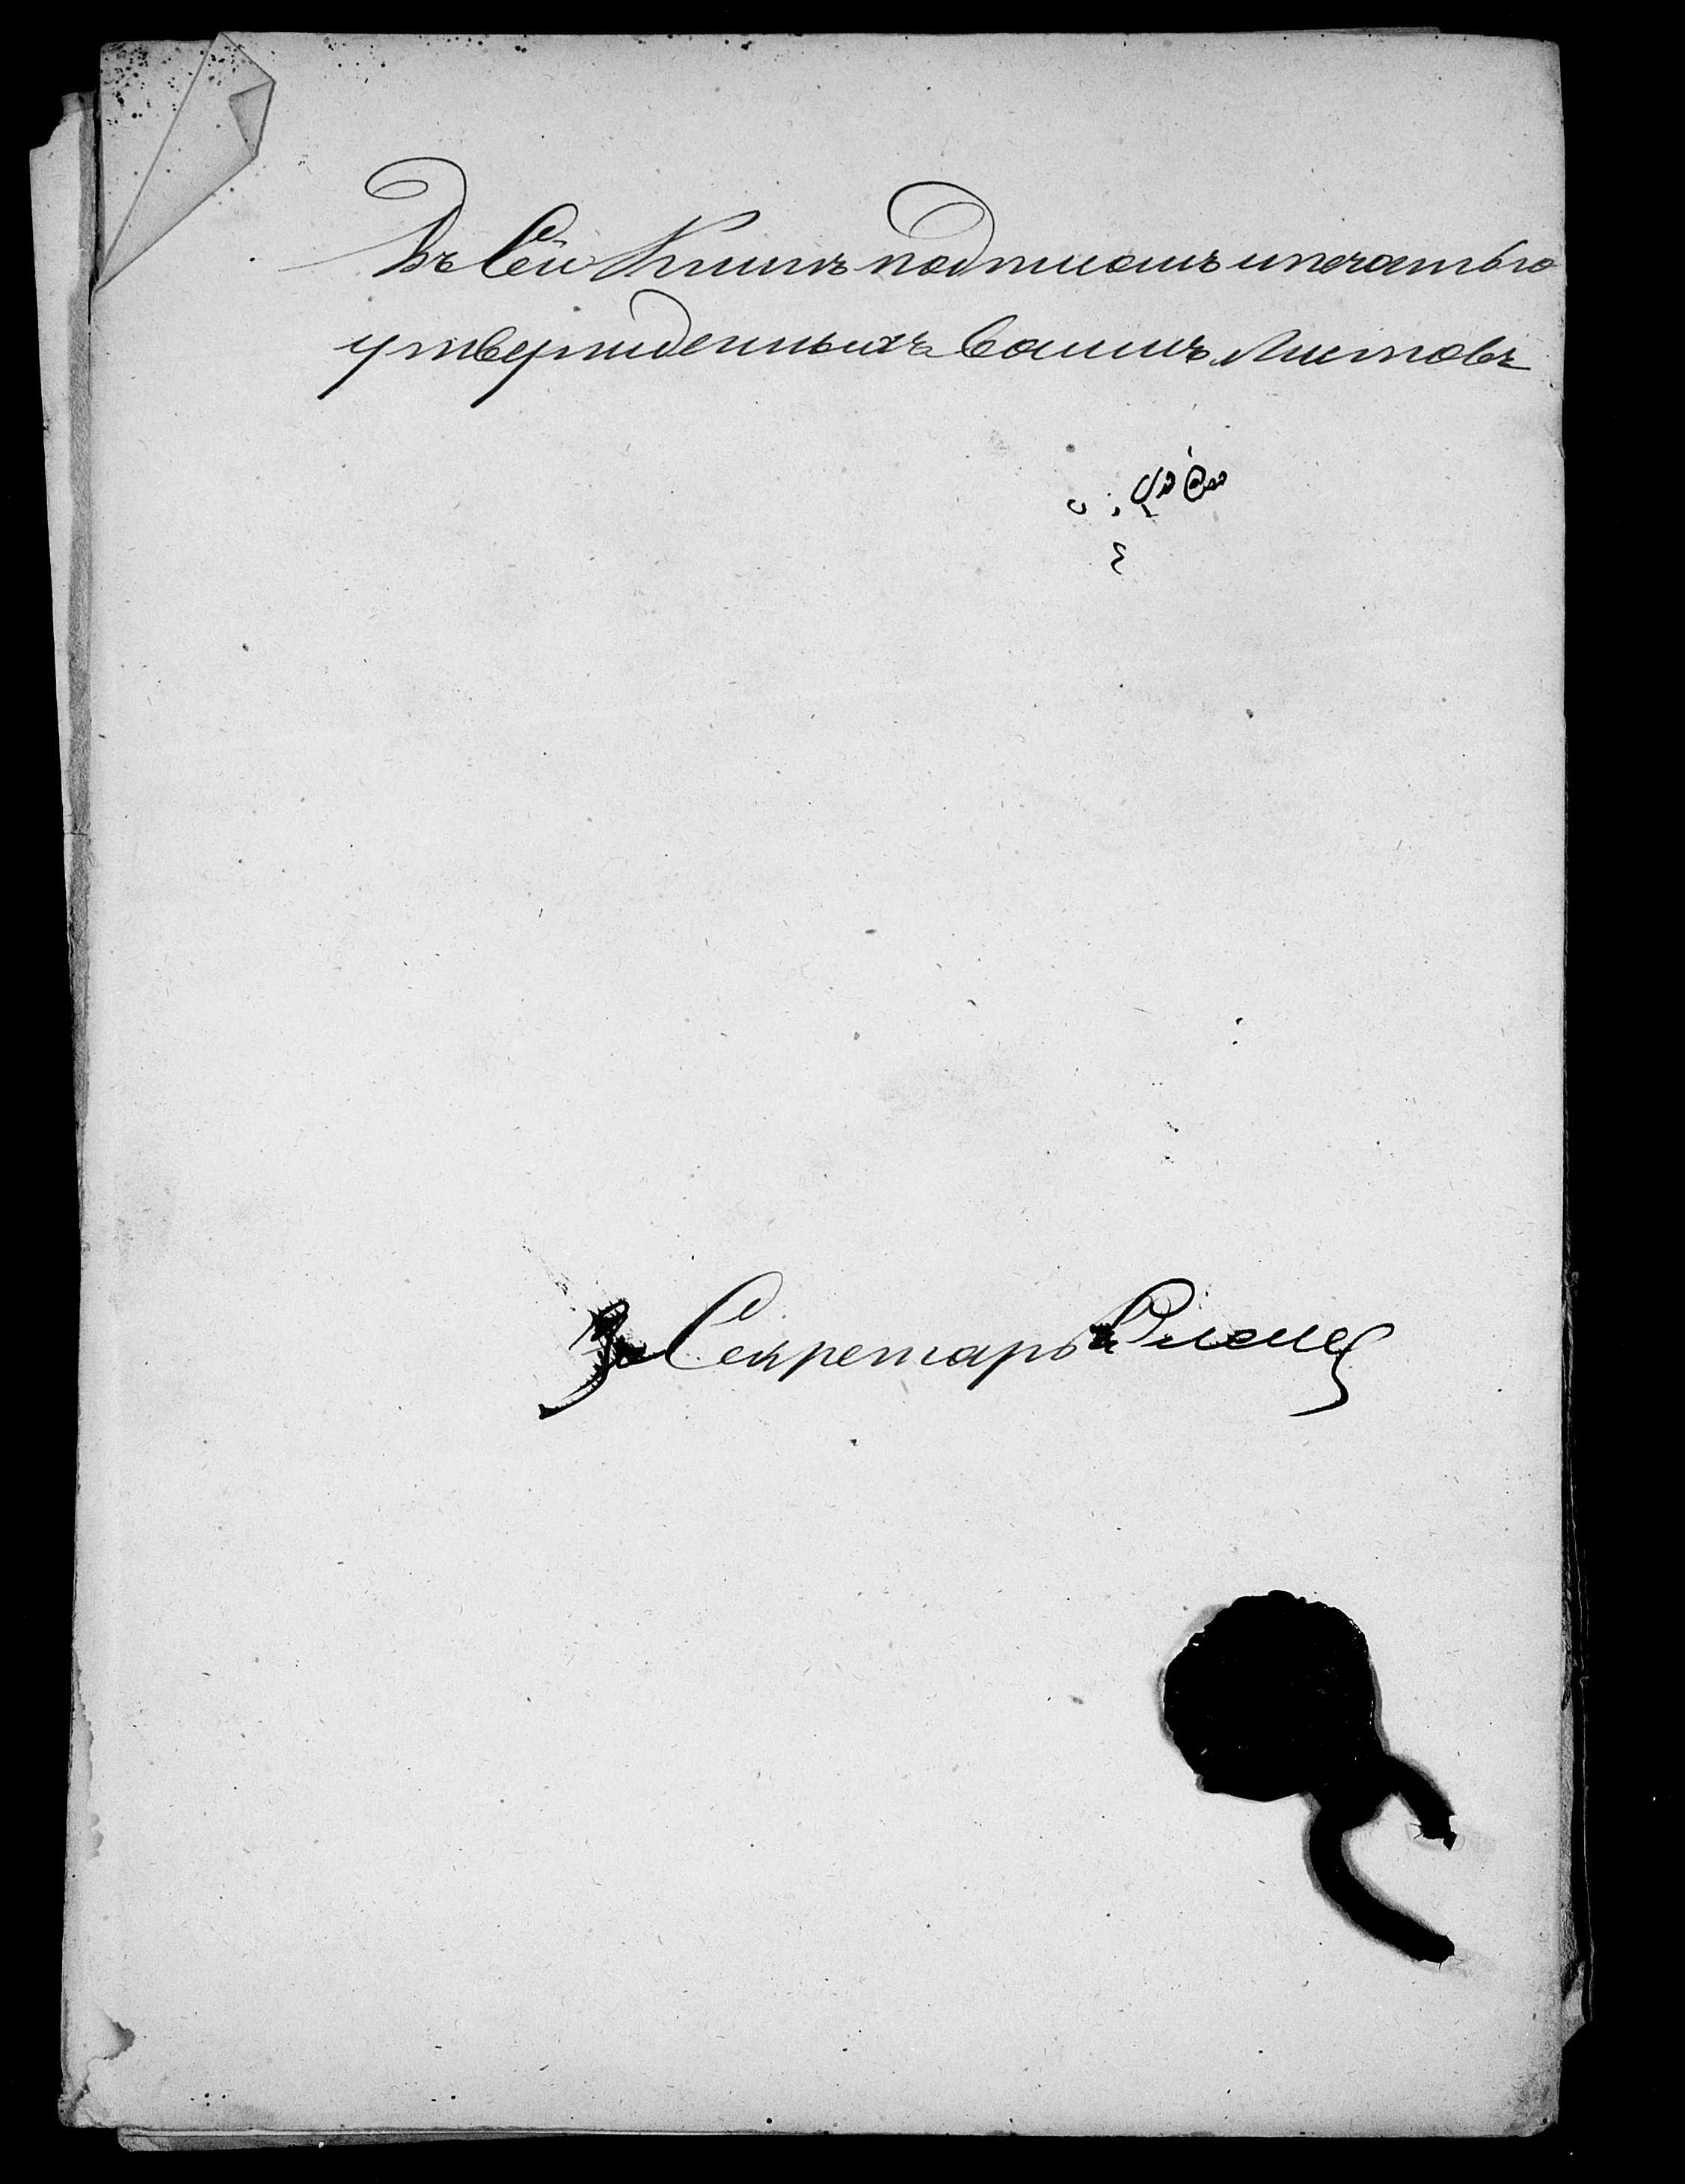 Въ Сей Книгѣ подписомъ и печатью
утвержденныхъ восимъ Листовъ
За Секретаря